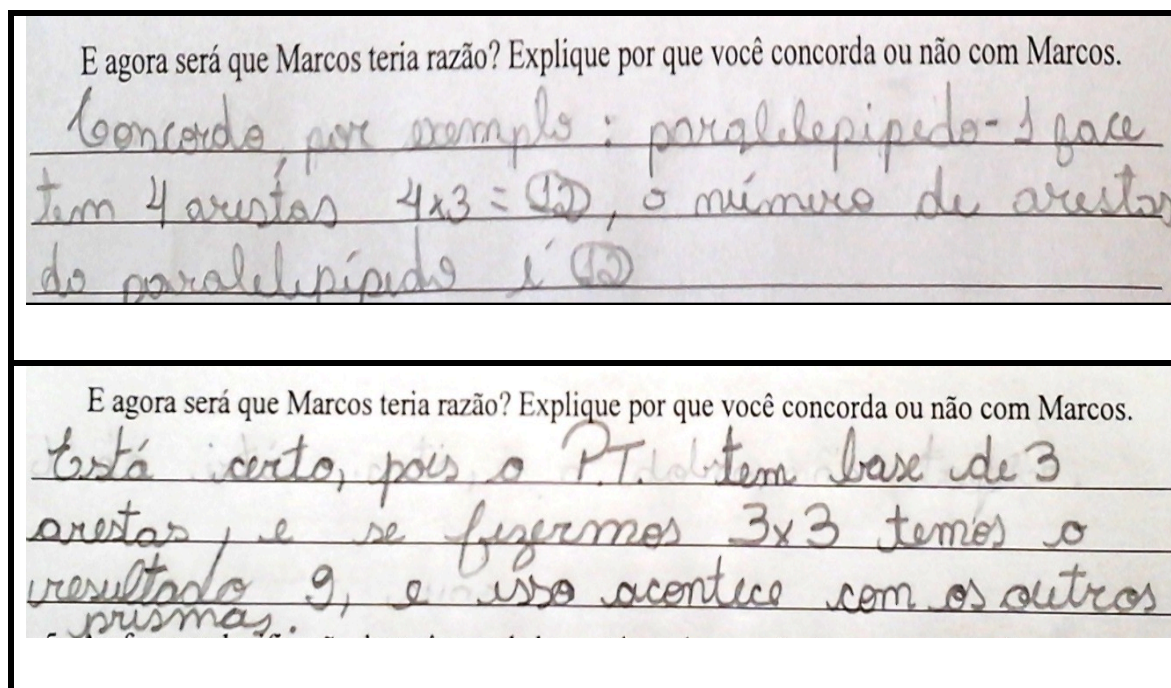 E agora será que Marcos teria razão? Explique por que você concorda ou não com Marcos.
Concordo, por exemplo: paralelepipedo- 1 face
tem 4 arestas 4x3 = 12, o número de arestas
do paralelepípedo é 12
E agora será que Marcos teria razão? Explique por que você concorda ou não com Marcos.
Está certo, pois o P.T. tem base de 3
arestas, e se fizermos 3x3 temos o
resultado 9, e isso acontece com os outros
prismas.